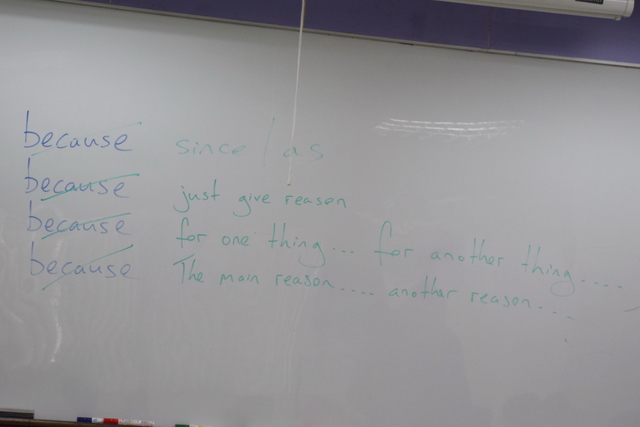 because since / as
because just give reason
because for one thing... for another thing....
because The main reason.... another reason...